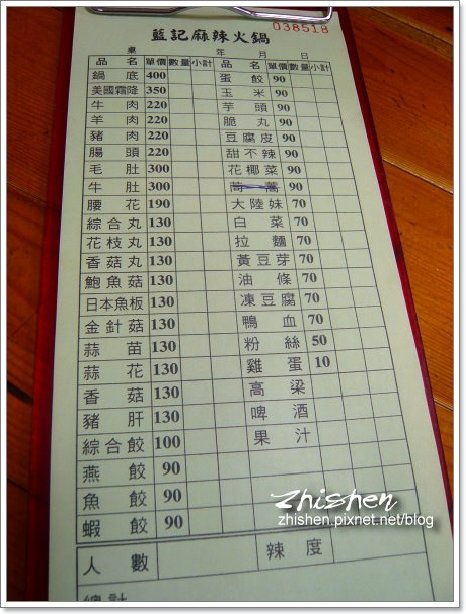 038518
藍記麻辣火鍋
桌 年 月 日
品名 單價 數量 小計 品名 單價 數量 小計
鍋底 400 蛋餃 90
美國霜降 350 玉米 90
牛肉 220 芋頭 90
羊肉 220 脆丸 90
豬肉 220 豆腐皮 90
腸頭 220 甜不辣 90
毛肚 300 花椰菜 90
牛肚 300 茼蒿 90
腰花 190 大陸妹 70
綜合丸 130 白菜 70
花枝丸 130 拉麵 70
香菇丸 130 黃豆芽 70
鮑魚菇 130 油條 70
日本魚板 130 凍豆腐 70
金針菇 130 鴨血 70
蒜苗 130 粉絲 50
蒜花 130 雞蛋 10
香菇 130 高梁
豬肝 130 啤酒
綜合餃 100 果汁
燕餃 90
魚餃 90
蝦餃 90
人數 辣度
總計
Zhishen
zhishen.pixnet.net/blog